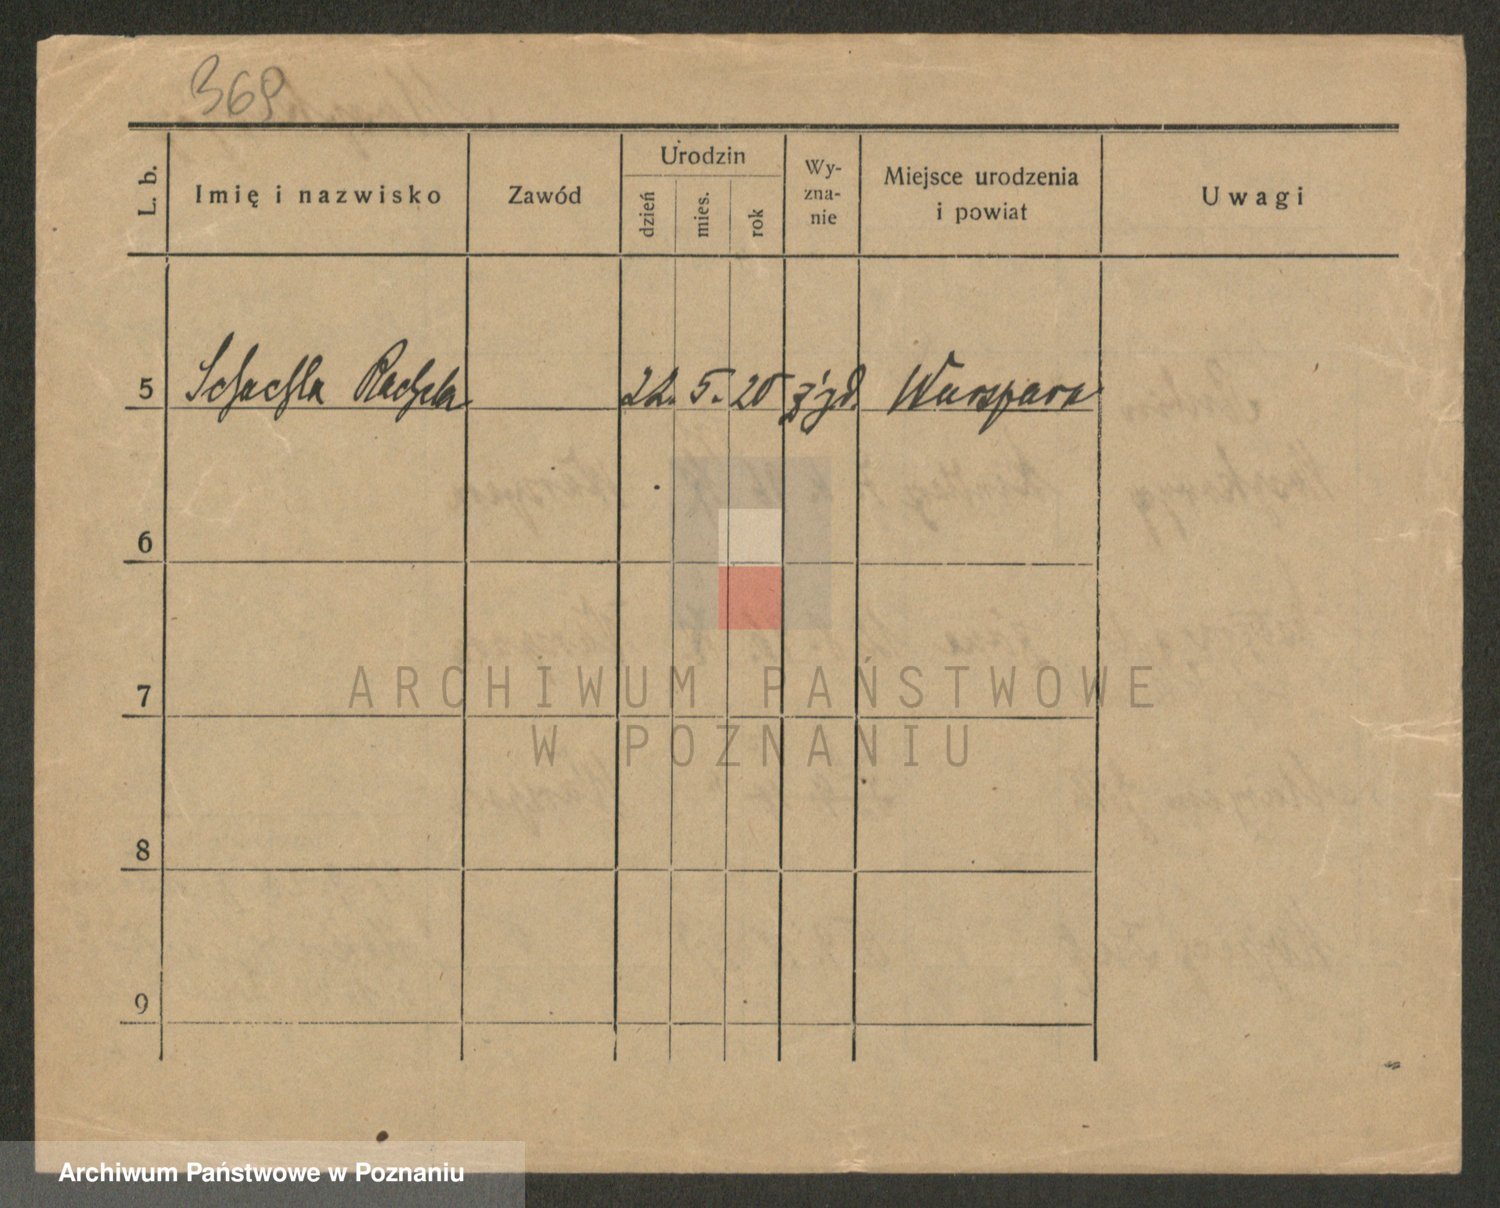 369
L. b.
Imię i nazwisko
Zawód
Urodzin
dzień
mies.
rok
Wy-
zna-
nie
Miejsce urodzenia
i powiat
Uwagi
5 Rachela 22. 5. 20 żyd. Warszawa
6
7
8
9
ARCHIWUM PAŃSTWOWE
W POZNANIU
Archiwum Państwowe w Poznaniu